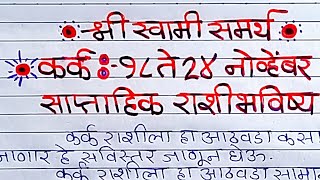 श्री स्वामी समर्थ
कर्क : - १८ ते २४ नोव्हेंबर
साप्ताहिक राशीभविष्य
कर्क राशीला हा आठवडा कसा
जाणार हे सविस्तर जाणून घेऊ.
कर्क राशीला हा आठवडा सामा